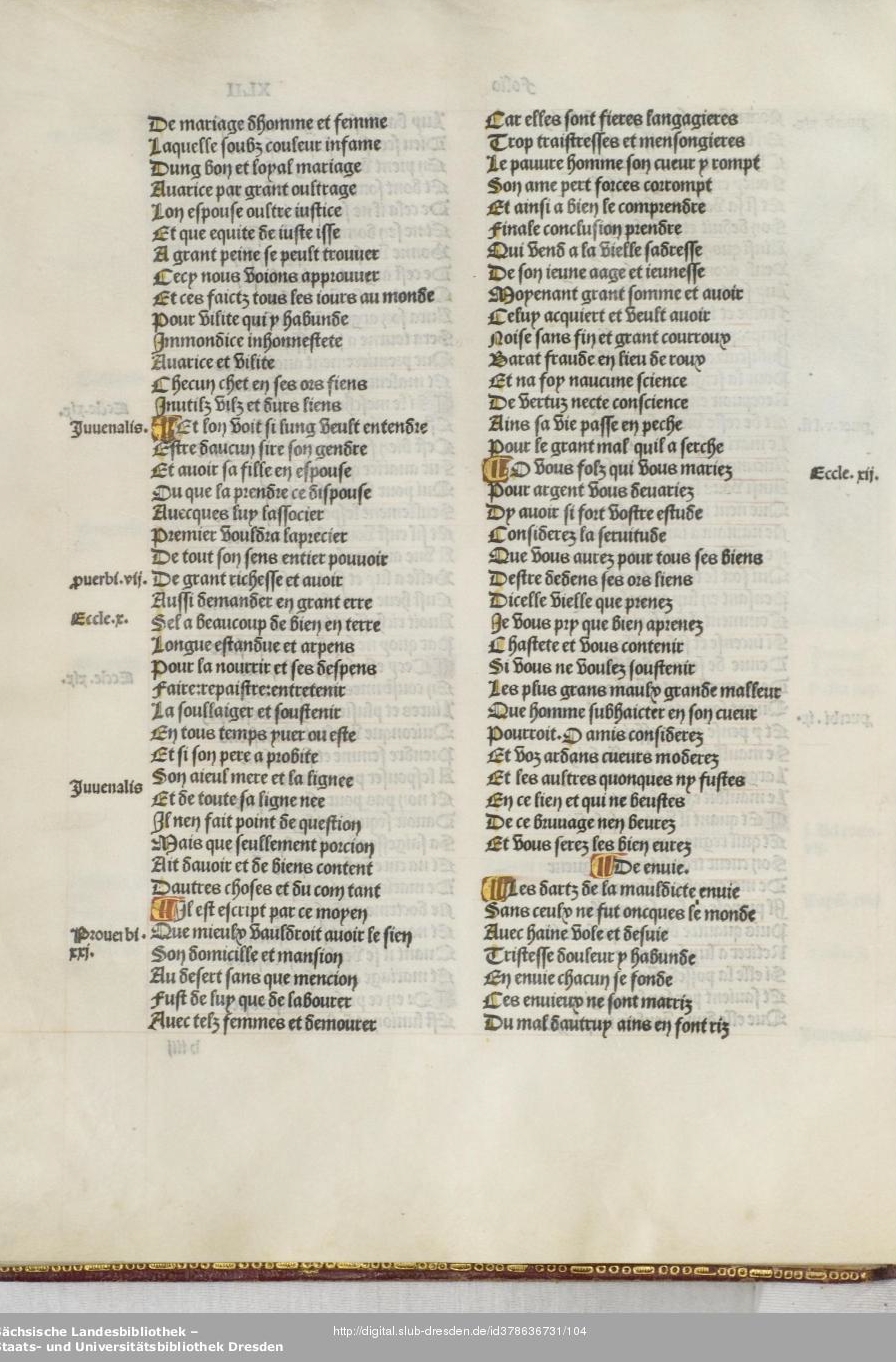 De mariage dhomme et femme
Laquelle soubz couleur infame
Dung bon et loyal mariage
Auarice par grant oultrage
Lon espouse oultre iustice
Et que equite de iuste isse
A grant peine se peult trouuer
Cecy nous voions approuuer
Et ces faictz tous les iours au monde
Pour vilite qui y habunde
Immondice inhonnestete
Auarice et vilite
Checun chet en ses ors fiens
Inutilz vilz et durs liens
Juuenalis.
¶ Et lon voit si lung veult entendre
Estre daucun sire son gendre
Et auoir sa fille en espouse
Ou que la prendre ce dispouse
Auecques luy lassocier
Premier vouldra laprecier
De tout son sens entier pouuoir
prouerbi. vij.
De grant richesse et auoir
Aussi demander en grant erre
Eccle. x.
Sel a beaucoup de bien en terre
Longue estandue et arpens
Pour la nourrir et ses despens
Faire:repaistre:entretenir
La soullaiger et soustenir
En tous temps yuer ou este
Et si son pere a probite
Son aieul mere et la lignee
Juuenalis
Et de toute sa ligne nee
Il nen fait point de question
Mais que seullement porcion
Ait dauoir et de biens content
Dautres choses et du com tant
¶ Il est escript par ce moyen
Prouerbi. xxj.
Que mieulx vauldroit auoir le sien
Son domicille et mansion
Au desert sans que mencion
Fust de luy que de labourer
Auec telz femmes et demourer
Car elles sont fieres langagieres
Trop traistresses et mensongieres
Le pauure homme son cueur y rompt
Son ame pert forces corrompt
Et ainsi a bien le comprendre
Finale conclusion prendre
Qui vend a la vielle sadresse
De son ieune aage et ieunesse
Moyenant grant somme et auoir
Celuy acquiert et veult auoir
Noise sans fin et grant courroux
Barat fraude en lieu de roux
Et na foy naucune science
De vertuz necte conscience
Ains sa vie passe en peche
Pour le grant mal quil a serche
¶ O vous folz qui vous mariez
Eccle. xij.
Pour argent vous deuariez
Dy auoir si fort vostre estude
Considerez la seruitude
Que vous aurez pour tous ses biens
Destre dedens ses ors liens
Dicelle vielle que prenez
Je vous pry que bien aprenez
Chastete et vous contenir
Si vous ne voulez soustenir
Les plus grans maulx grande malleur
Que homme subhaicter en son cueur
Pourroit. O amis considerez
Et voz ardans cueurs moderez
Et les aultres quonques ny fustes
En ce lien et qui ne beustes
De ce bruuage nen beurez
Et vous serez les bien eurez
¶ De enuie.
¶ Les dartz de la mauldicte enuie
Sans ceulx ne fut oncques le monde
Auec haine vole et desuie
Tristesse douleur y habunde
En enuie chacun se fonde
Ces enuieux ne sont marriz
Du mal dautruy ains en font riz
Sächsische Landesbibliothek –
Staats- und Universitätsbibliothek Dresden
http://digital.slub-dresden.de/id378636731/104